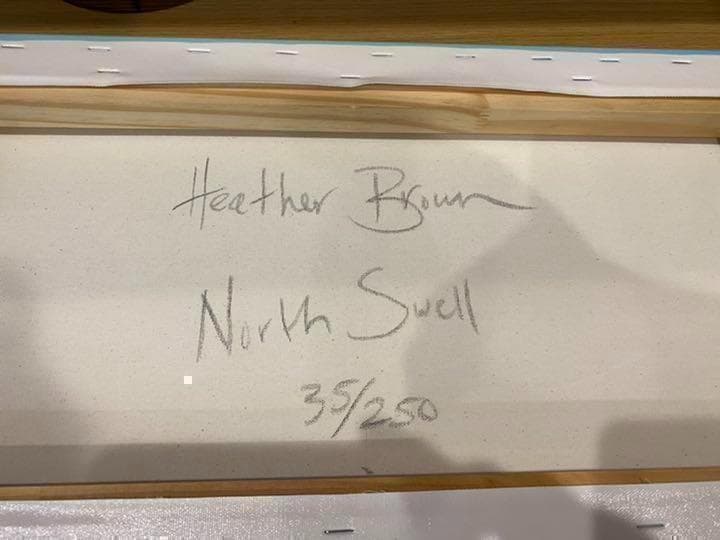 Heather Brown
North Swell
35/250